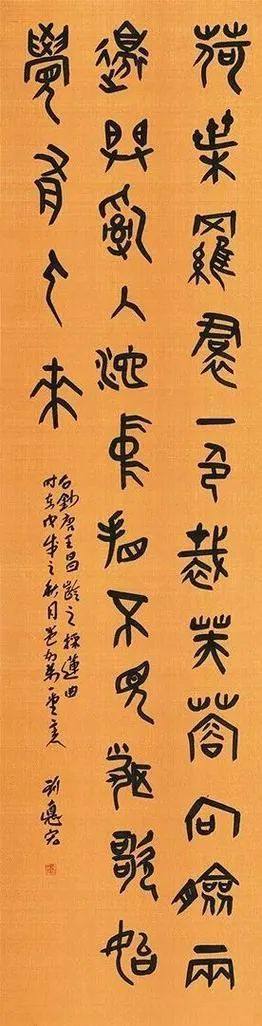 荷葉羅裙一色裁芙蓉向臉兩
邊開亂入池中看不見聞歌始
覺有人來
右鈔唐王昌齡之採蓮曲
時在戊戌之秋月